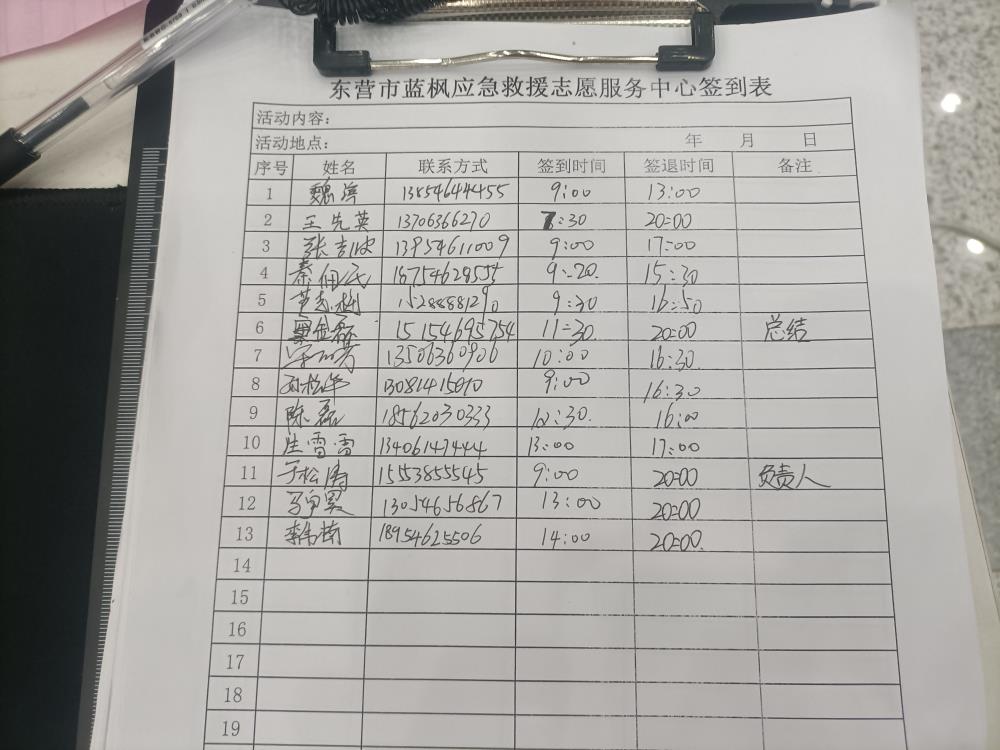 东营市蓝枫应急救援志愿服务中心签到表
活动内容：
活动地点： 年 月 日
序号 姓名 联系方式 签到时间 签退时间 备注
1 魏萍 13854644455 9:00 13:00
2 王先英 13706366270 7:30 20:00
3 张吉波 13954611009 9:00 17:00
4 秦佃民 18754628555 9:20 15:30
5 15288881290 9:30 16:50
6 窦金磊 15154695754 11:30 20:00 总结
7 13506360906 10:00 16:30
8 孙松华 13081415010 9:00 16:30
9 陈磊 18562030333 12:30 16:00
10 庄雪雷 13406147444 13:00 17:00
11 于松涛 15553855545 9:00 20:00 负责人
12 13054656867 13:00 20:00
13 李伟楠 18954625506 14:00 20:00
14
15
16
17
18
19